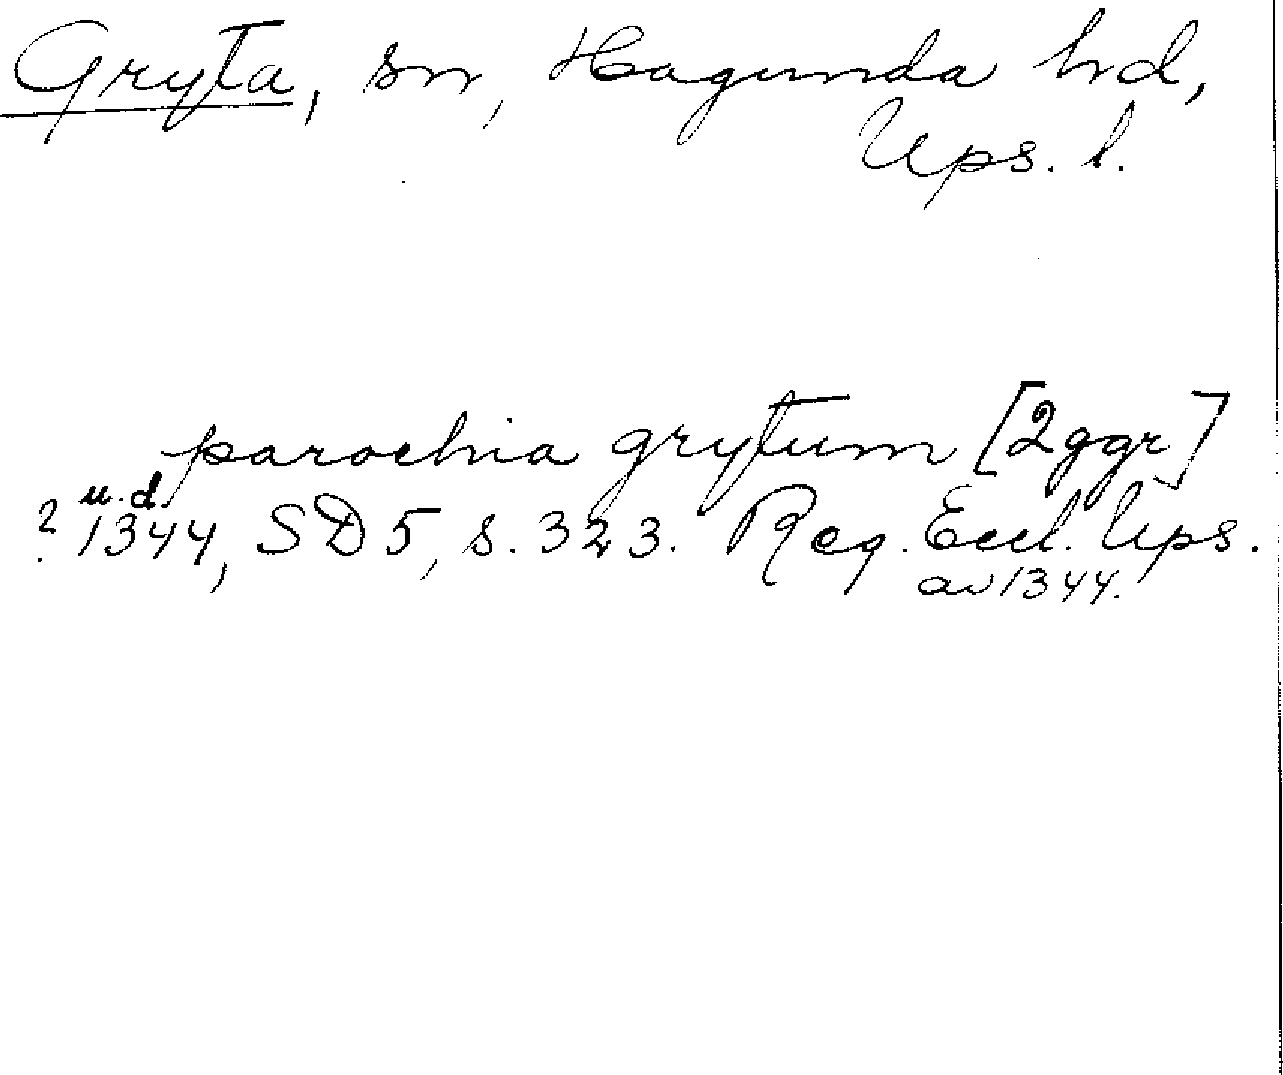 Gryta, sn, Hagunda hd,
Ups. l.
parochia grytum [2ggr]
u.d.
? 1344, SD 5, s. 323. Reg. Eccl. Ups.
av 1344.